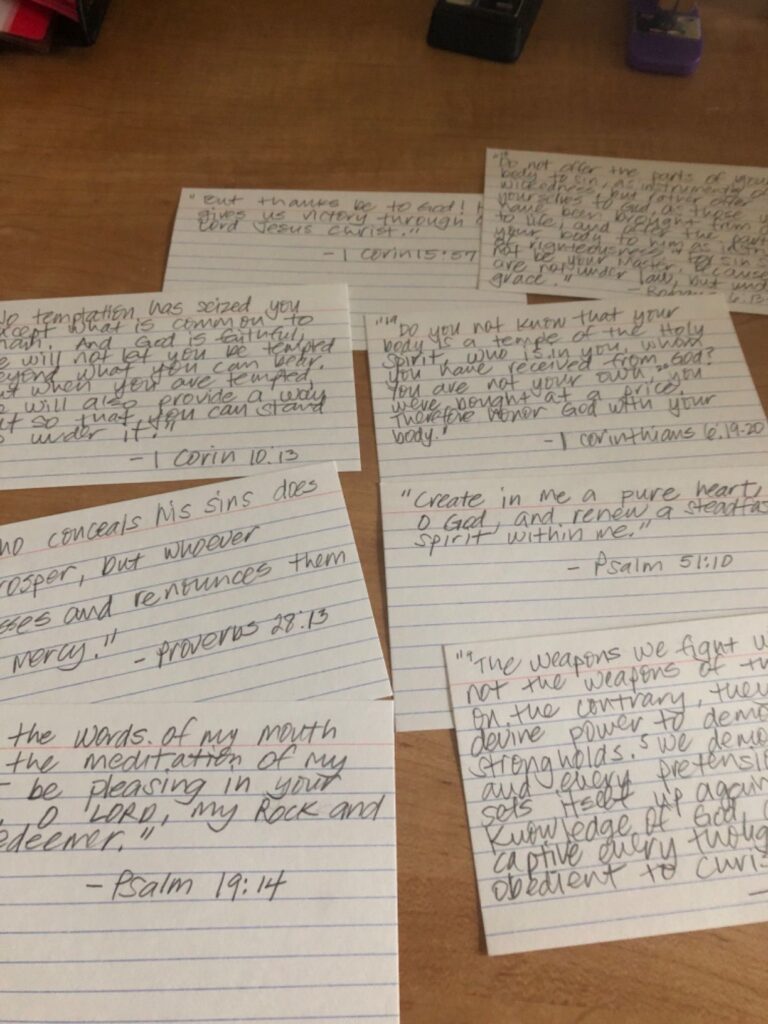 "But thanks be to God! H
gives us victory through
Lord Jesus Christ."
- 1 Corin 15:57
"13 Do not offer the parts of your
body to sin, as instruments of
wickedness, but rather offer
yourselves to God as those
have been brought from
to life, and offer the part
your body to him as instr
not righteousness
not be your master, because
are not under law, but und
grace."
- Romans 6.13-
No temptation has seized you
except what is common to
man. And God is faithful,
he will not let you be tempted
beyond what you can bear.
But when you are tempted,
he will also provide a way
out so that you can stand
up under it."
- 1 Corin 10:13
"19 Do you not know that your
body is a temple of the Holy
Spirit, who is in you, whom
you have received from God?
You are not your own 20 you
were bought at a price.
Therefore honor God with your
body."
- 1 corinthians 6.19-20
who conceals his sins does
rosper, but whoever
sses and renounces them
mercy."
- Proverbs 28:13
"Create in me a pure heart,
O God, and renew a steadfas
spirit within me."
- Psalm 51:10
the words of my mouth
the meditation of my
be pleasing in your
O LORD, my Rock and
edeemer."
- Psalm 19:14
The weapons we fight w
not the weapons of th
on the contrary, they
devine power to demo
strongholds. 5 we demo
and every pretensi
sets itself up again
knowledge of God,
captive every thoug
obedient to Chris